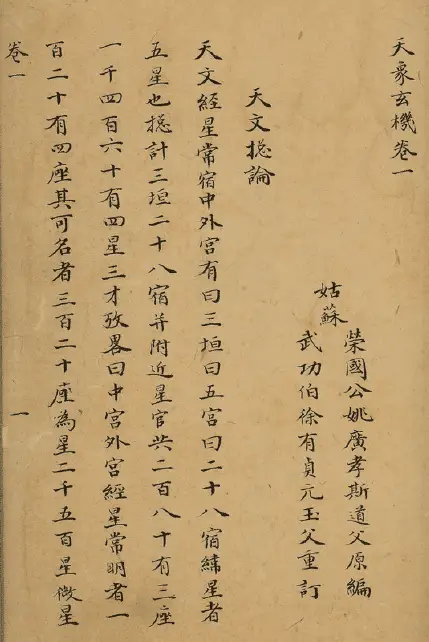 天象玄機卷一
榮國公姚廣孝斯道父原編
姑蘇
武功伯徐有貞元玉父重訂
天文揔論
天文經星常宿中外宫有曰三垣曰五宫曰二十八宿緯星者
五星也揔計三垣二十八宿并附近星官共二百八十有三座
一千四百六十有四星三才攷畧曰中宫外宫經星常明者一
百二十有四座其可名者三百二十座為星二千五百星微星
卷一
一